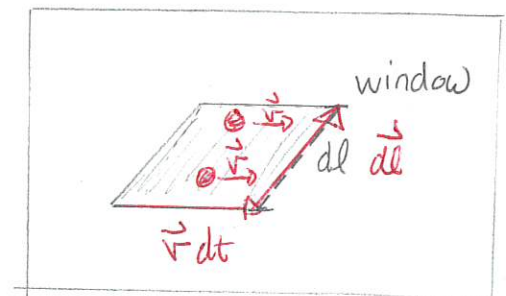 window
v⃗
v⃗
dl dl⃗
v⃗ dt